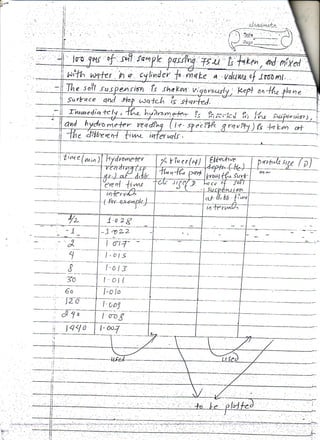 100 gms of soil sample passing 75 u is taken, and mixed
with water in a cylinder to make a volume of 1000ml.
The soil suspension is shaken vigorously, kept on the plane
surface and stop watch is started.
Immediately, the hydrometer is inserted in the suspension,
and hydrometer reading (i.e. specific gravity) is taken at
the different time intervals.
time (min) Hydrometer reading at different time intervals (for example)
% finer than the particle size D
Effective depth (He) from the surface of soil suspension at time intervals
particle size (D) mm
1/2 1.028
1 1.022
2 1.017
4 1.015
8 1.013
30 1.011
60 1.010
120 1.009
240 1.008
1440 1.007
used used
to be plotted